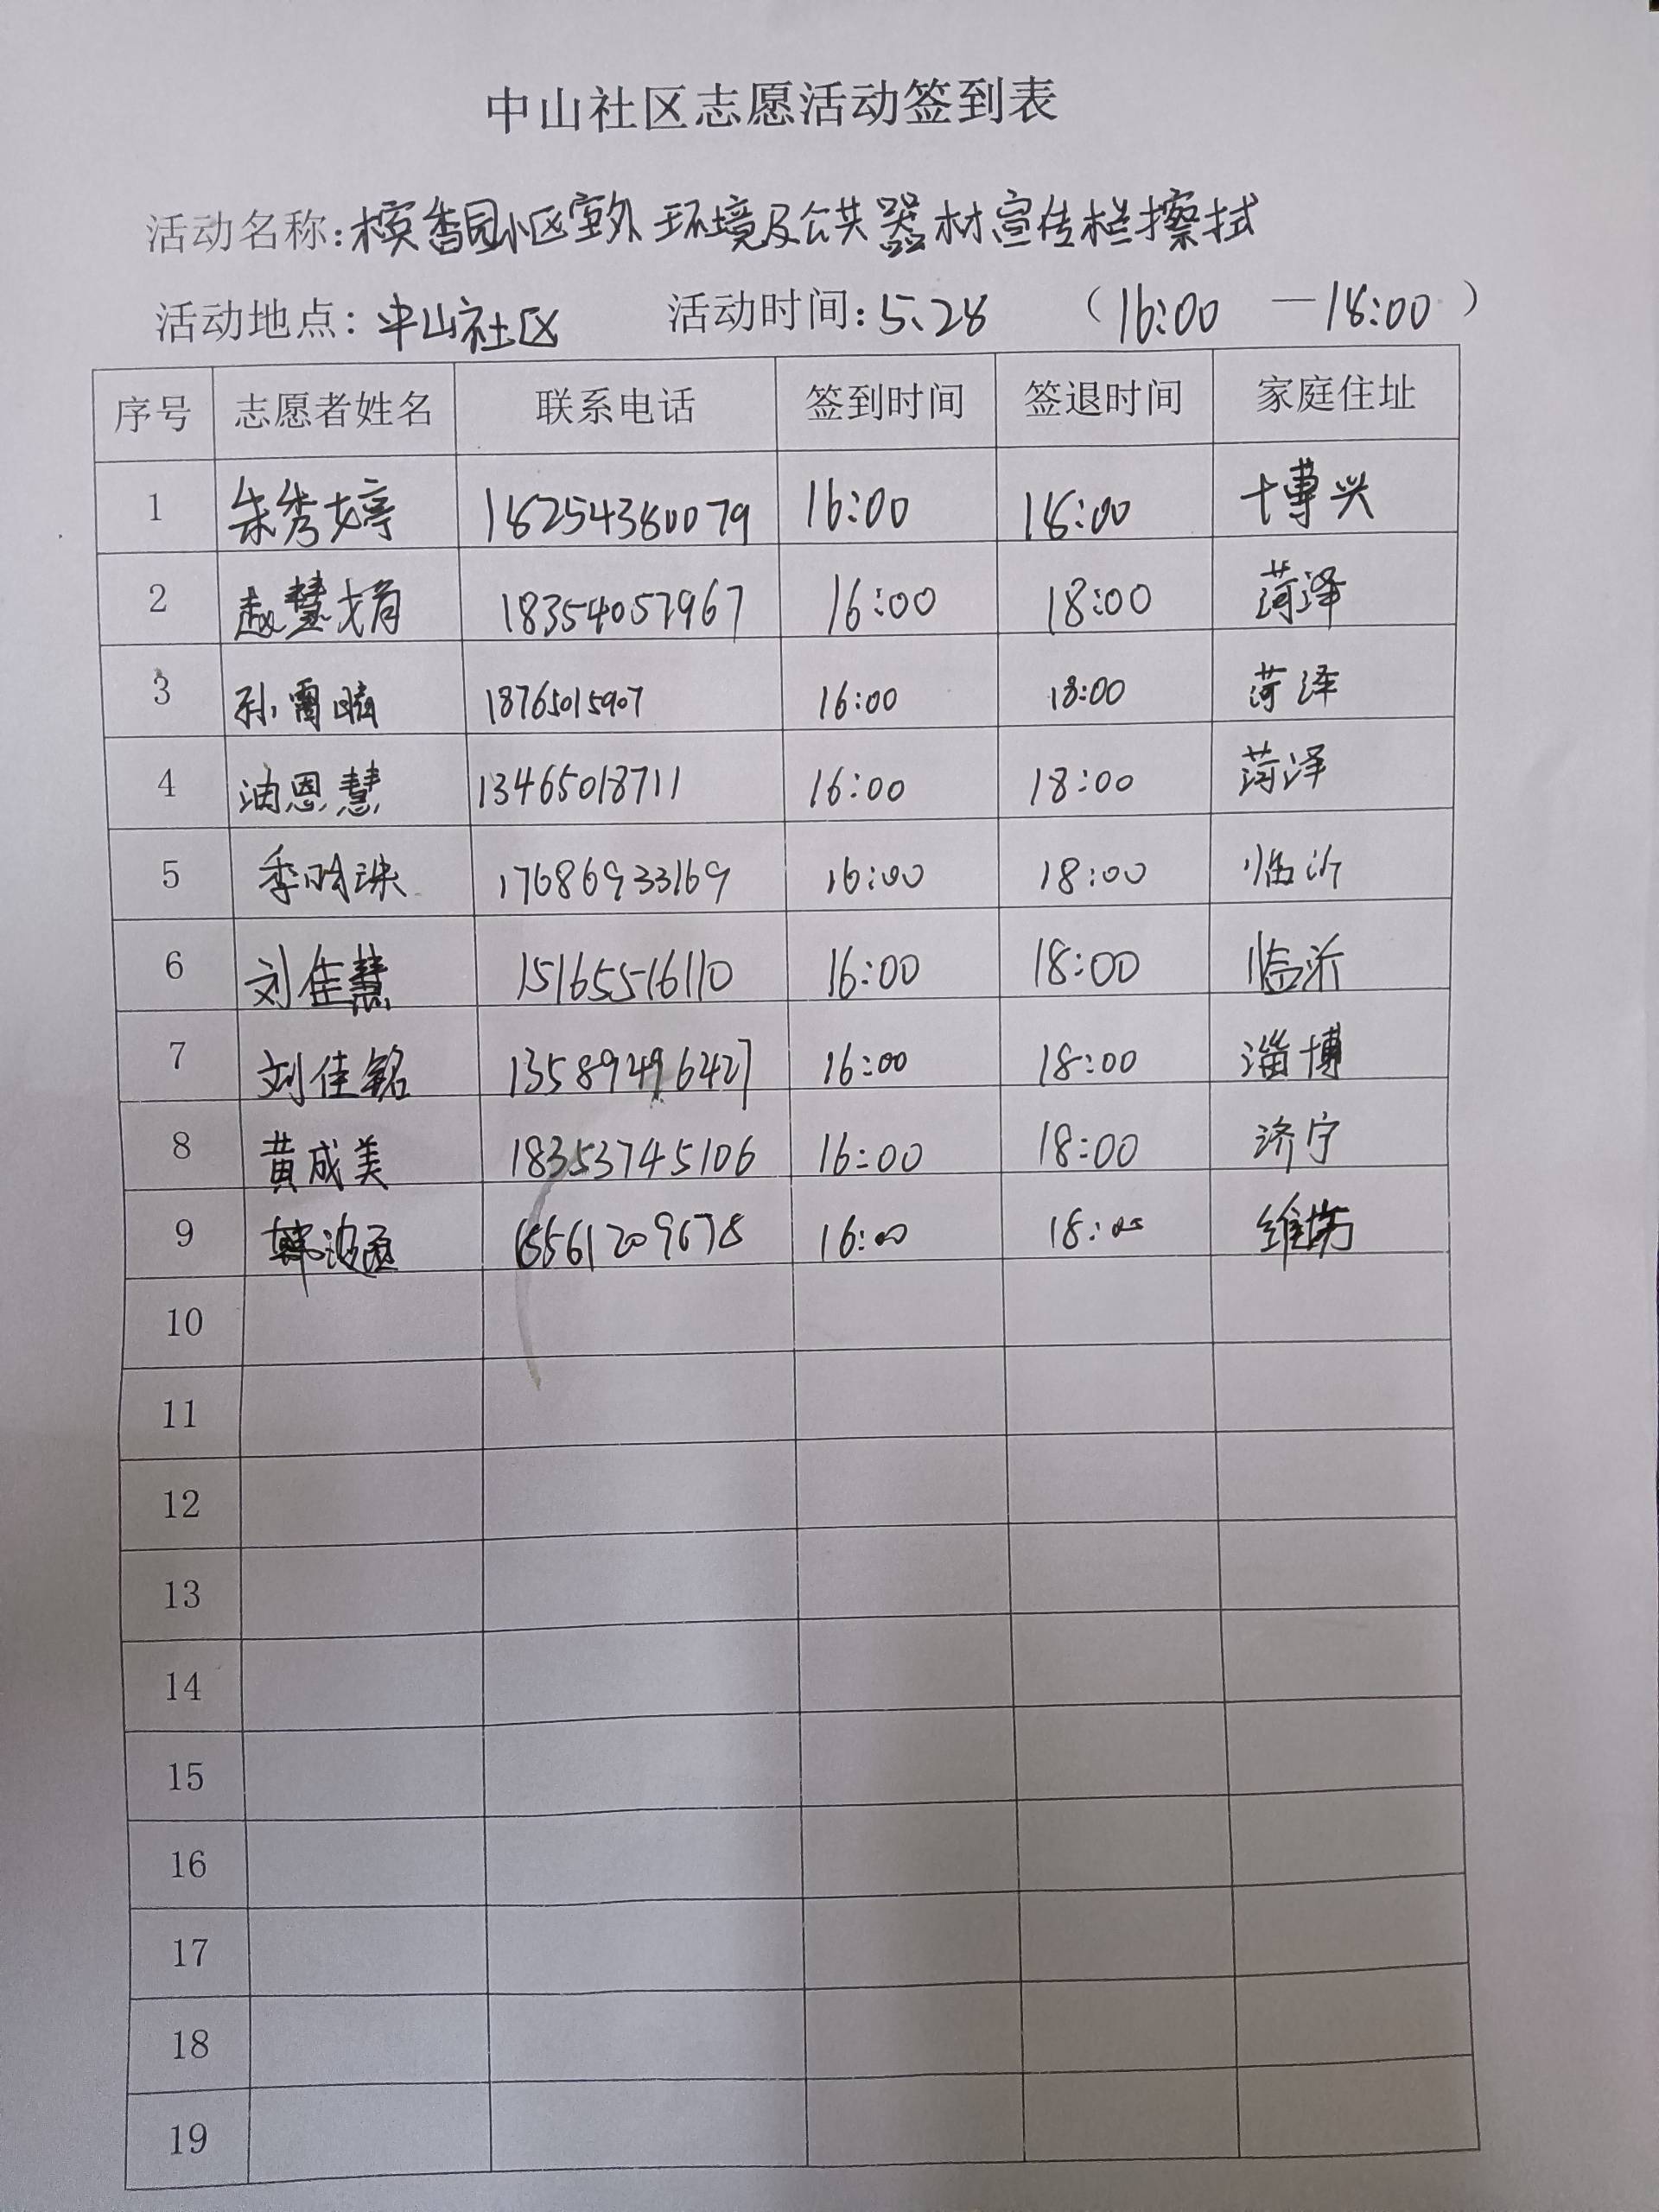 中山社区志愿活动签到表
活动名称:槟香园小区室外环境及公共器材宣传栏擦拭
活动地点:中山社区 活动时间:5.28 (16:00 —18:00)
序号 志愿者姓名 联系电话 签到时间 签退时间 家庭住址
1 朱秀婷 18254380079 16:00 18:00 博兴
2 赵慧娟 18354057967 16:00 18:00 菏泽
3 孙雷晴 18765015907 16:00 18:00 菏泽
4 油恩慧 13465018711 16:00 18:00 菏泽
5 季明珠 17686933169 16:00 18:00 临沂
6 刘佳慧 15165516110 16:00 18:00 临沂
7 刘佳铭 13589496427 16:00 18:00 淄博
8 黄成美 18353745106 16:00 18:00 济宁
9 韩 15561209678 16:00 18:00 维坊
10
11
12
13
14
15
16
17
18
19